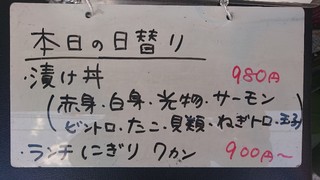 本日の日替り
・漬け丼 980円
(赤身・白身・光物・サーモン
ビントロ・たこ・貝類・ねぎトロ・玉子)
・ランチにぎり 7カン 900円～